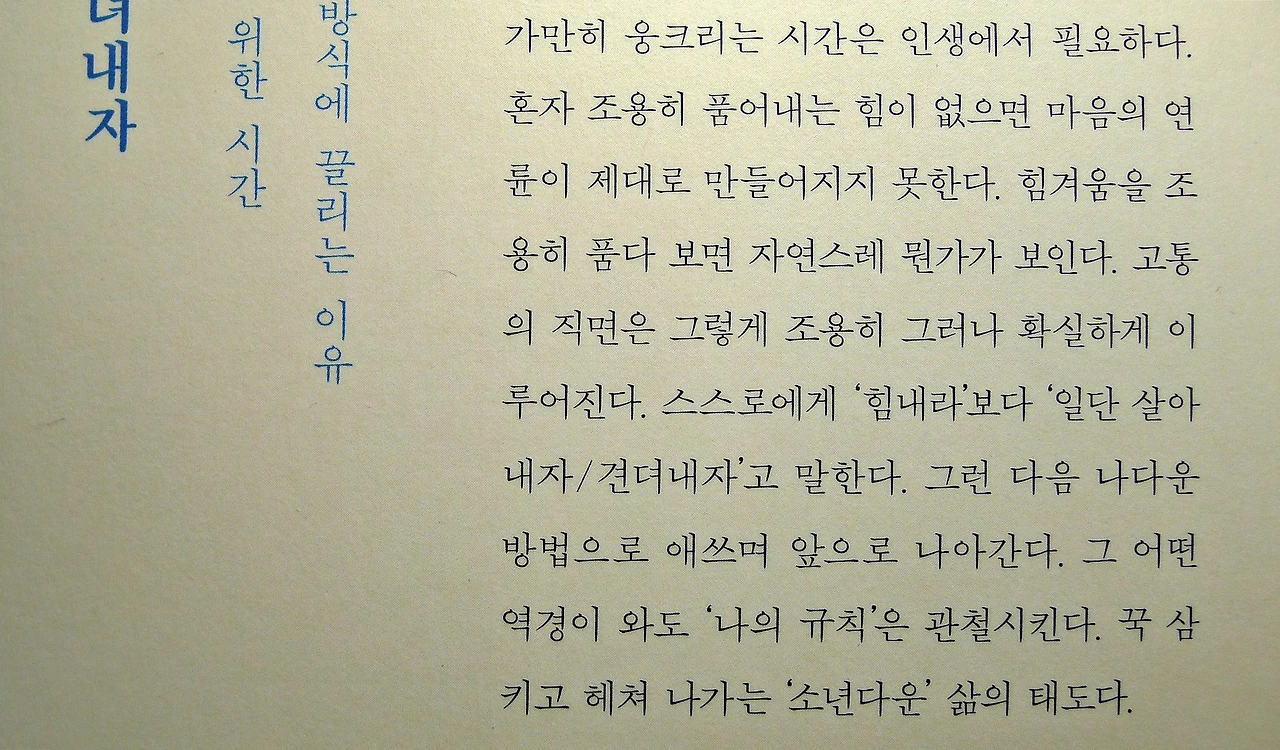 녀내자
위한 시간
방식에 끌리는 이유
가만히 웅크리는 시간은 인생에서 필요하다.
혼자 조용히 품어내는 힘이 없으면 마음의 연
륜이 제대로 만들어지지 못한다. 힘겨움을 조
용히 품다 보면 자연스레 뭔가가 보인다. 고통
의 직면은 그렇게 조용히 그러나 확실하게 이
루어진다. 스스로에게 ‘힘내라’보다 ‘일단 살아
내자/견뎌내자’고 말한다. 그런 다음 나다운
방법으로 애쓰며 앞으로 나아간다. 그 어떤
역경이 와도 ‘나의 규칙’은 관철시킨다. 꾹 삼
키고 헤쳐 나가는 ‘소년다운’ 삶의 태도다.